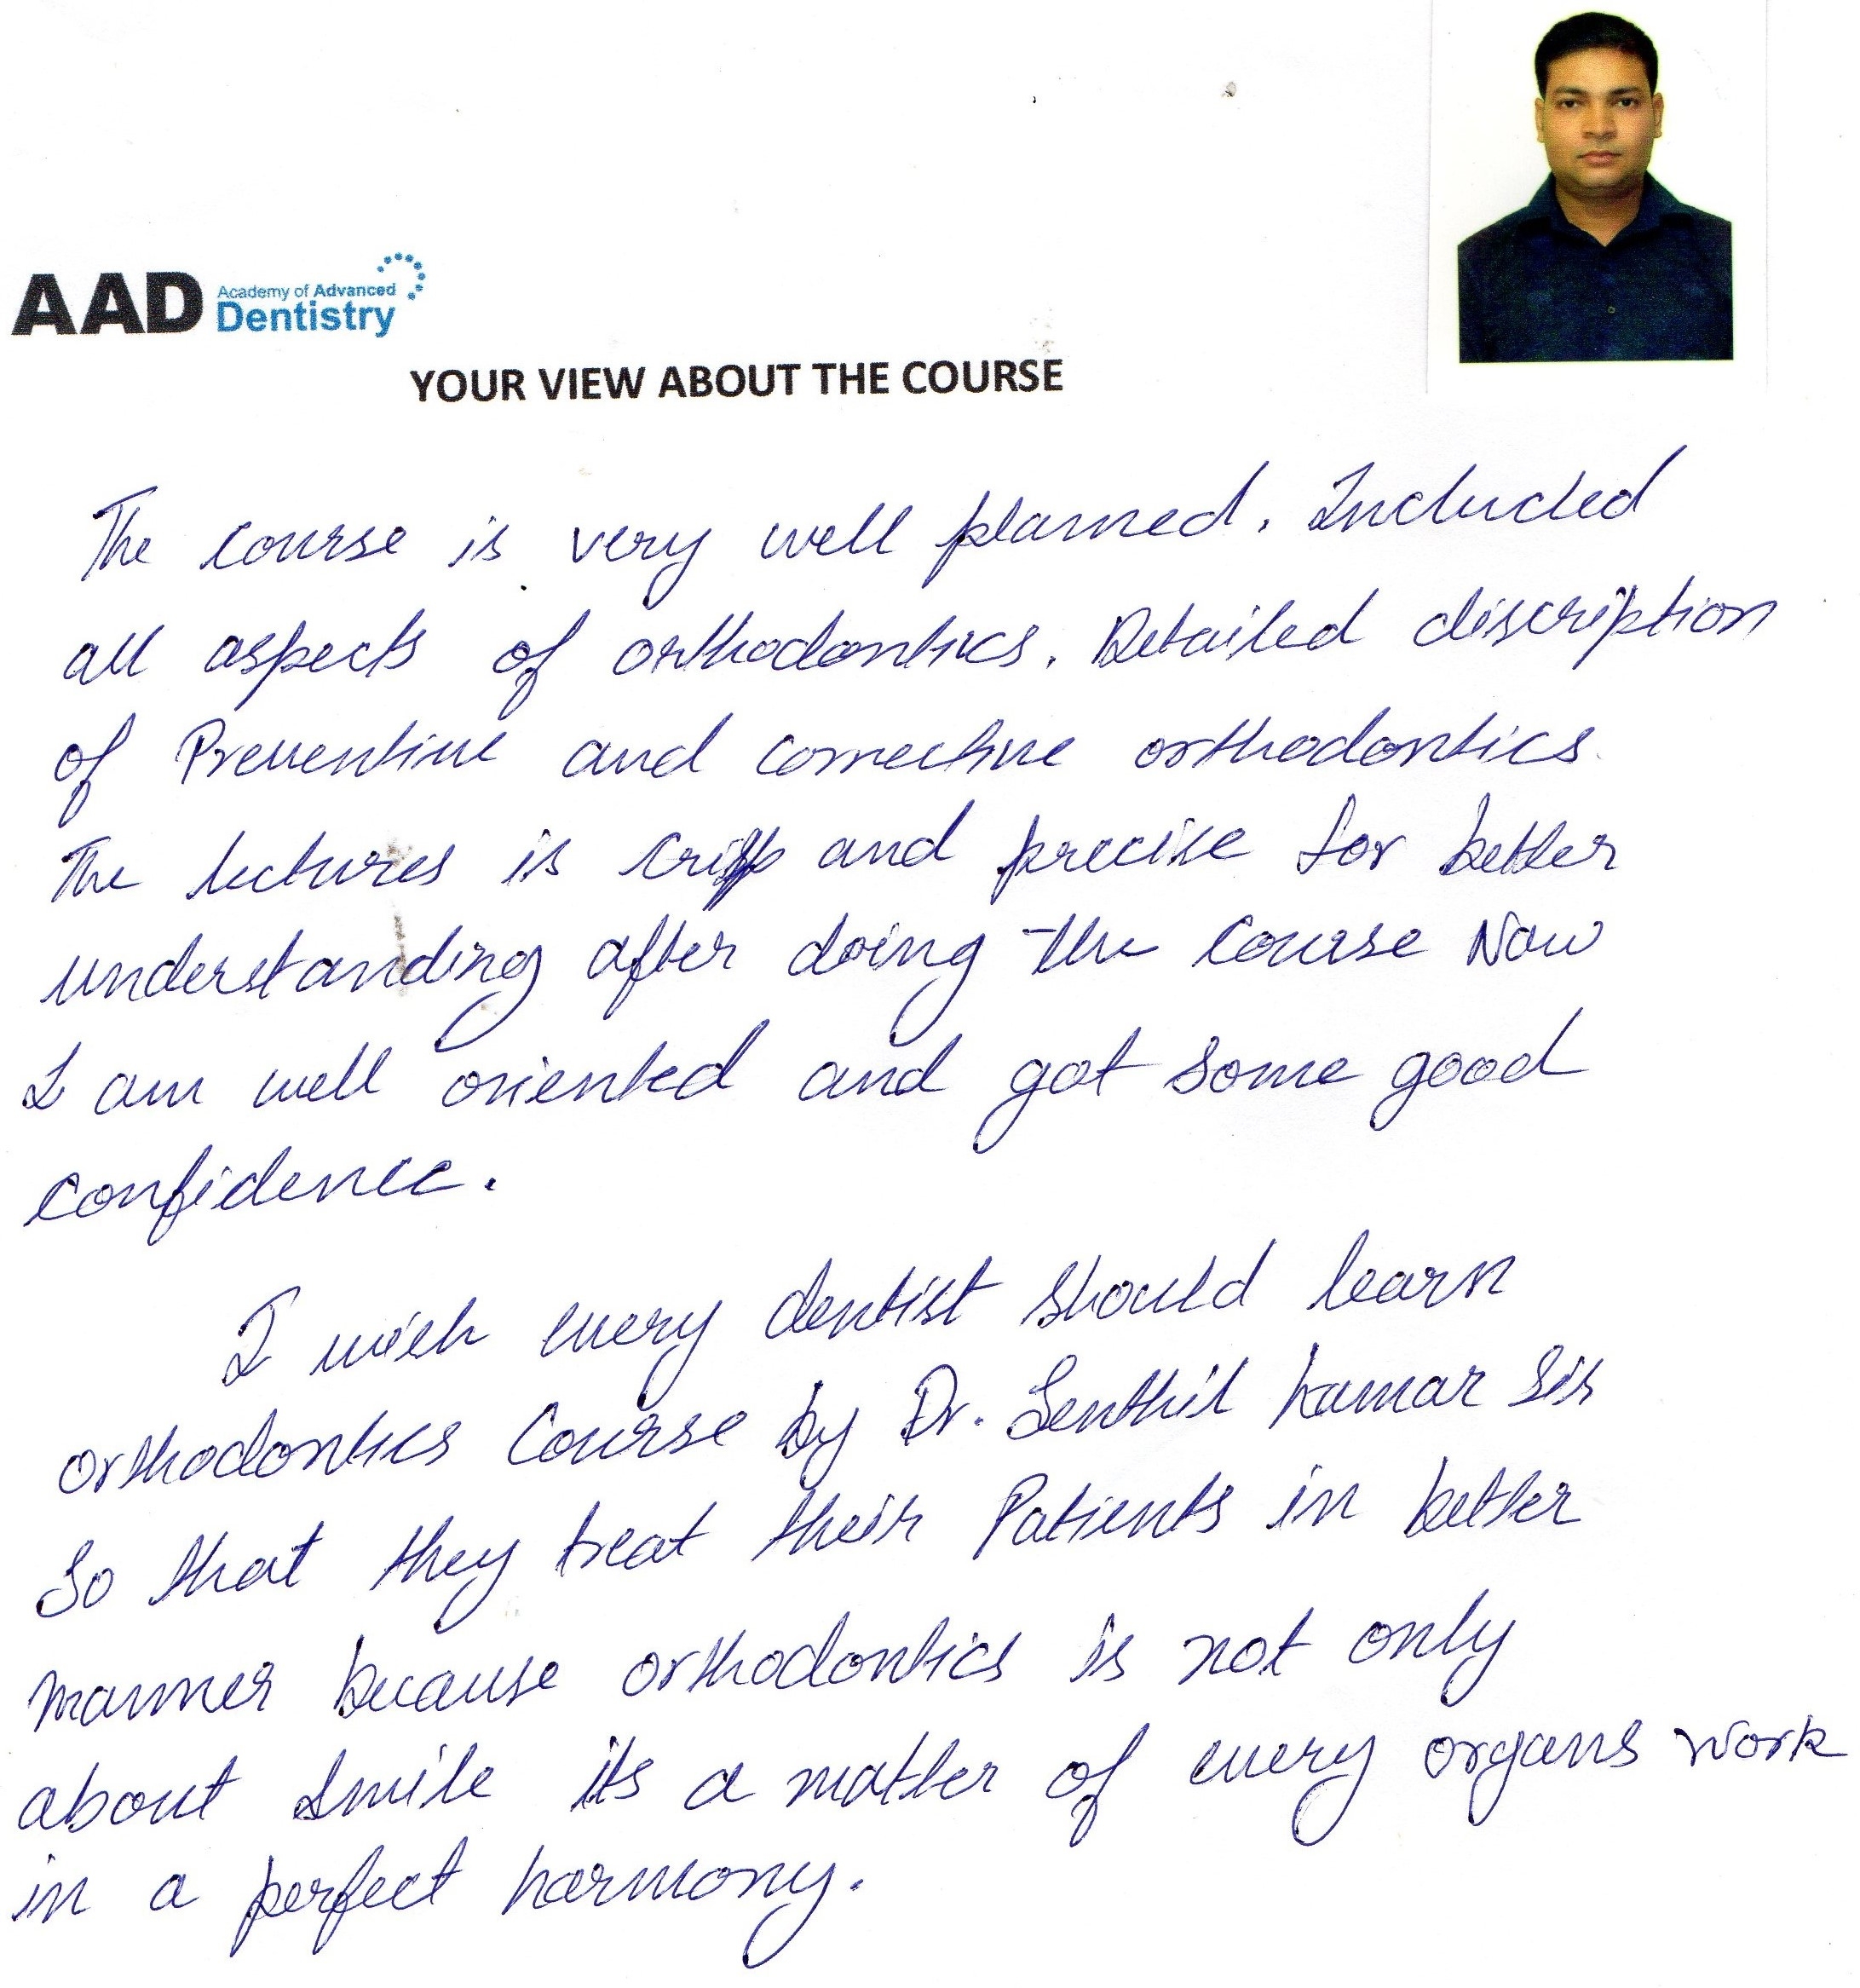 AAD Academy of Advanced
Dentistry
YOUR VIEW ABOUT THE COURSE
The course is very well planned. Included
all aspects of orthodontics. Detailed discription
of Preventive and corrective orthodontics.
The lectures is crisp and precise for better
understanding after doing the course Now
I am well oriented and got some good
confidence.
I wish every dentist should learn
orthodontics Course by Dr. Senthil kumar Sir
So that they treat their Patients in better
manner because orthodontics is not only
about smile its a matter of every organs work
in a perfect harmony.